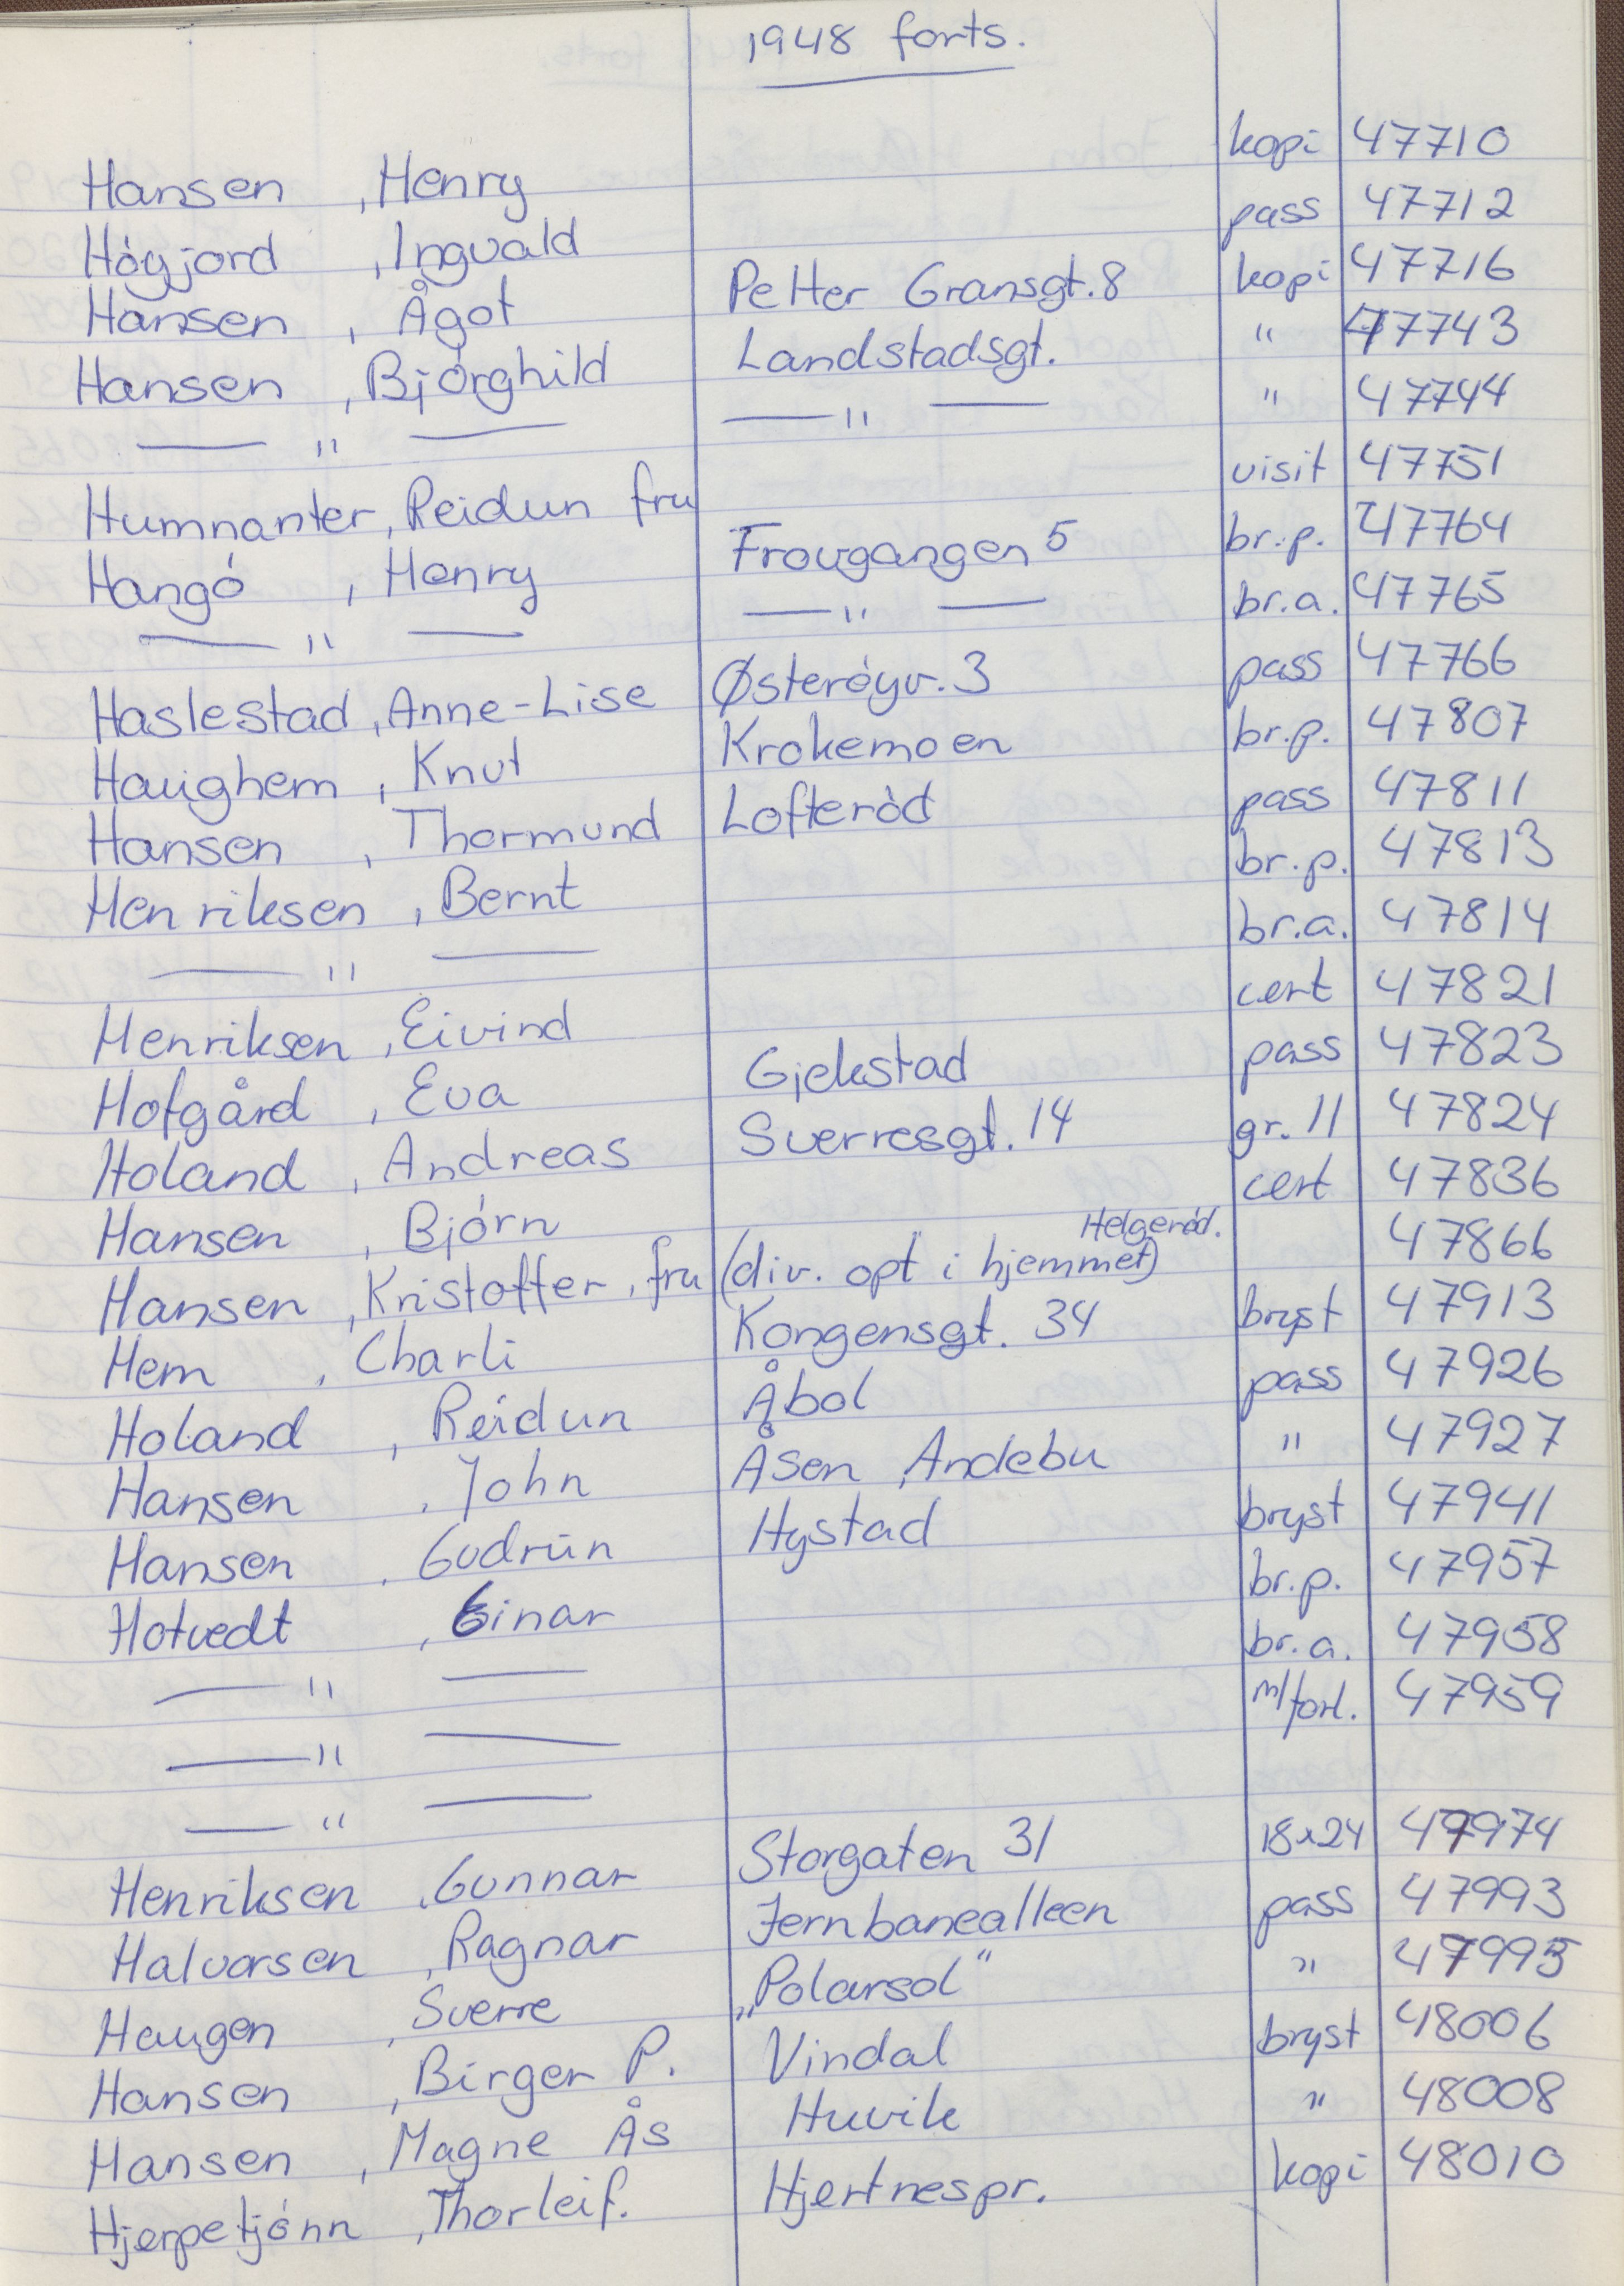 1948 forts.
Hansen , Henry kopi 47710
Høgjord , Ingvald pass 47712
Hansen , Ågot Petter Gransgt. 8 kopi 47716
Hansen , Bjørghild Landstadsgt. " 47743
— " — — " — " 47744
Humnanter, Reidun fru visit 47751
Hangø , Henry Frougangen 5 br.p. 47764
— " — — " — br.a. 47765
Haslestad , Anne-Lise Østerøyv. 3 pass 47766
Haughem , Knut Krokemoen br.p. 47807
Hansen , Thormund Lofterød pass 47811
Henriksen , Bernt br.p. 47813
— " — br.a. 47814
Henriksen , Eivind cert 47821
Hofgård , Eva Gjekstad pass 47823
Holand , Andreas Sverresgt. 14 gr. 11 47824
Hansen , Bjørn cert 47836
Hansen , Kristoffer, fru (div. opt i hjemmet) Helgerød. 47866
Hem , Charli Kongensgt. 34 bryst 47913
Holand , Reidun Åbol pass 47926
Hansen , John Åsen, Andebu " 47927
Hansen , Gudrun Hystad bryst 47941
Hotvedt , Einar br.p. 47957
— " — br.a. 47958
— " — m/forl. 47959
— " —
Henriksen , Gunnar Storgaten 31 18x24 47974
Halvorsen , Ragnar Jernbanealleen pass 47993
Haugen , Sverre „Polarsol" " 47995
Hansen , Birger P. Vindal bryst 48006
Hansen , Magne Ås Huvik " 48008
Hjerpetjønn , Thorleif. Hjertnespr. kopi 48010